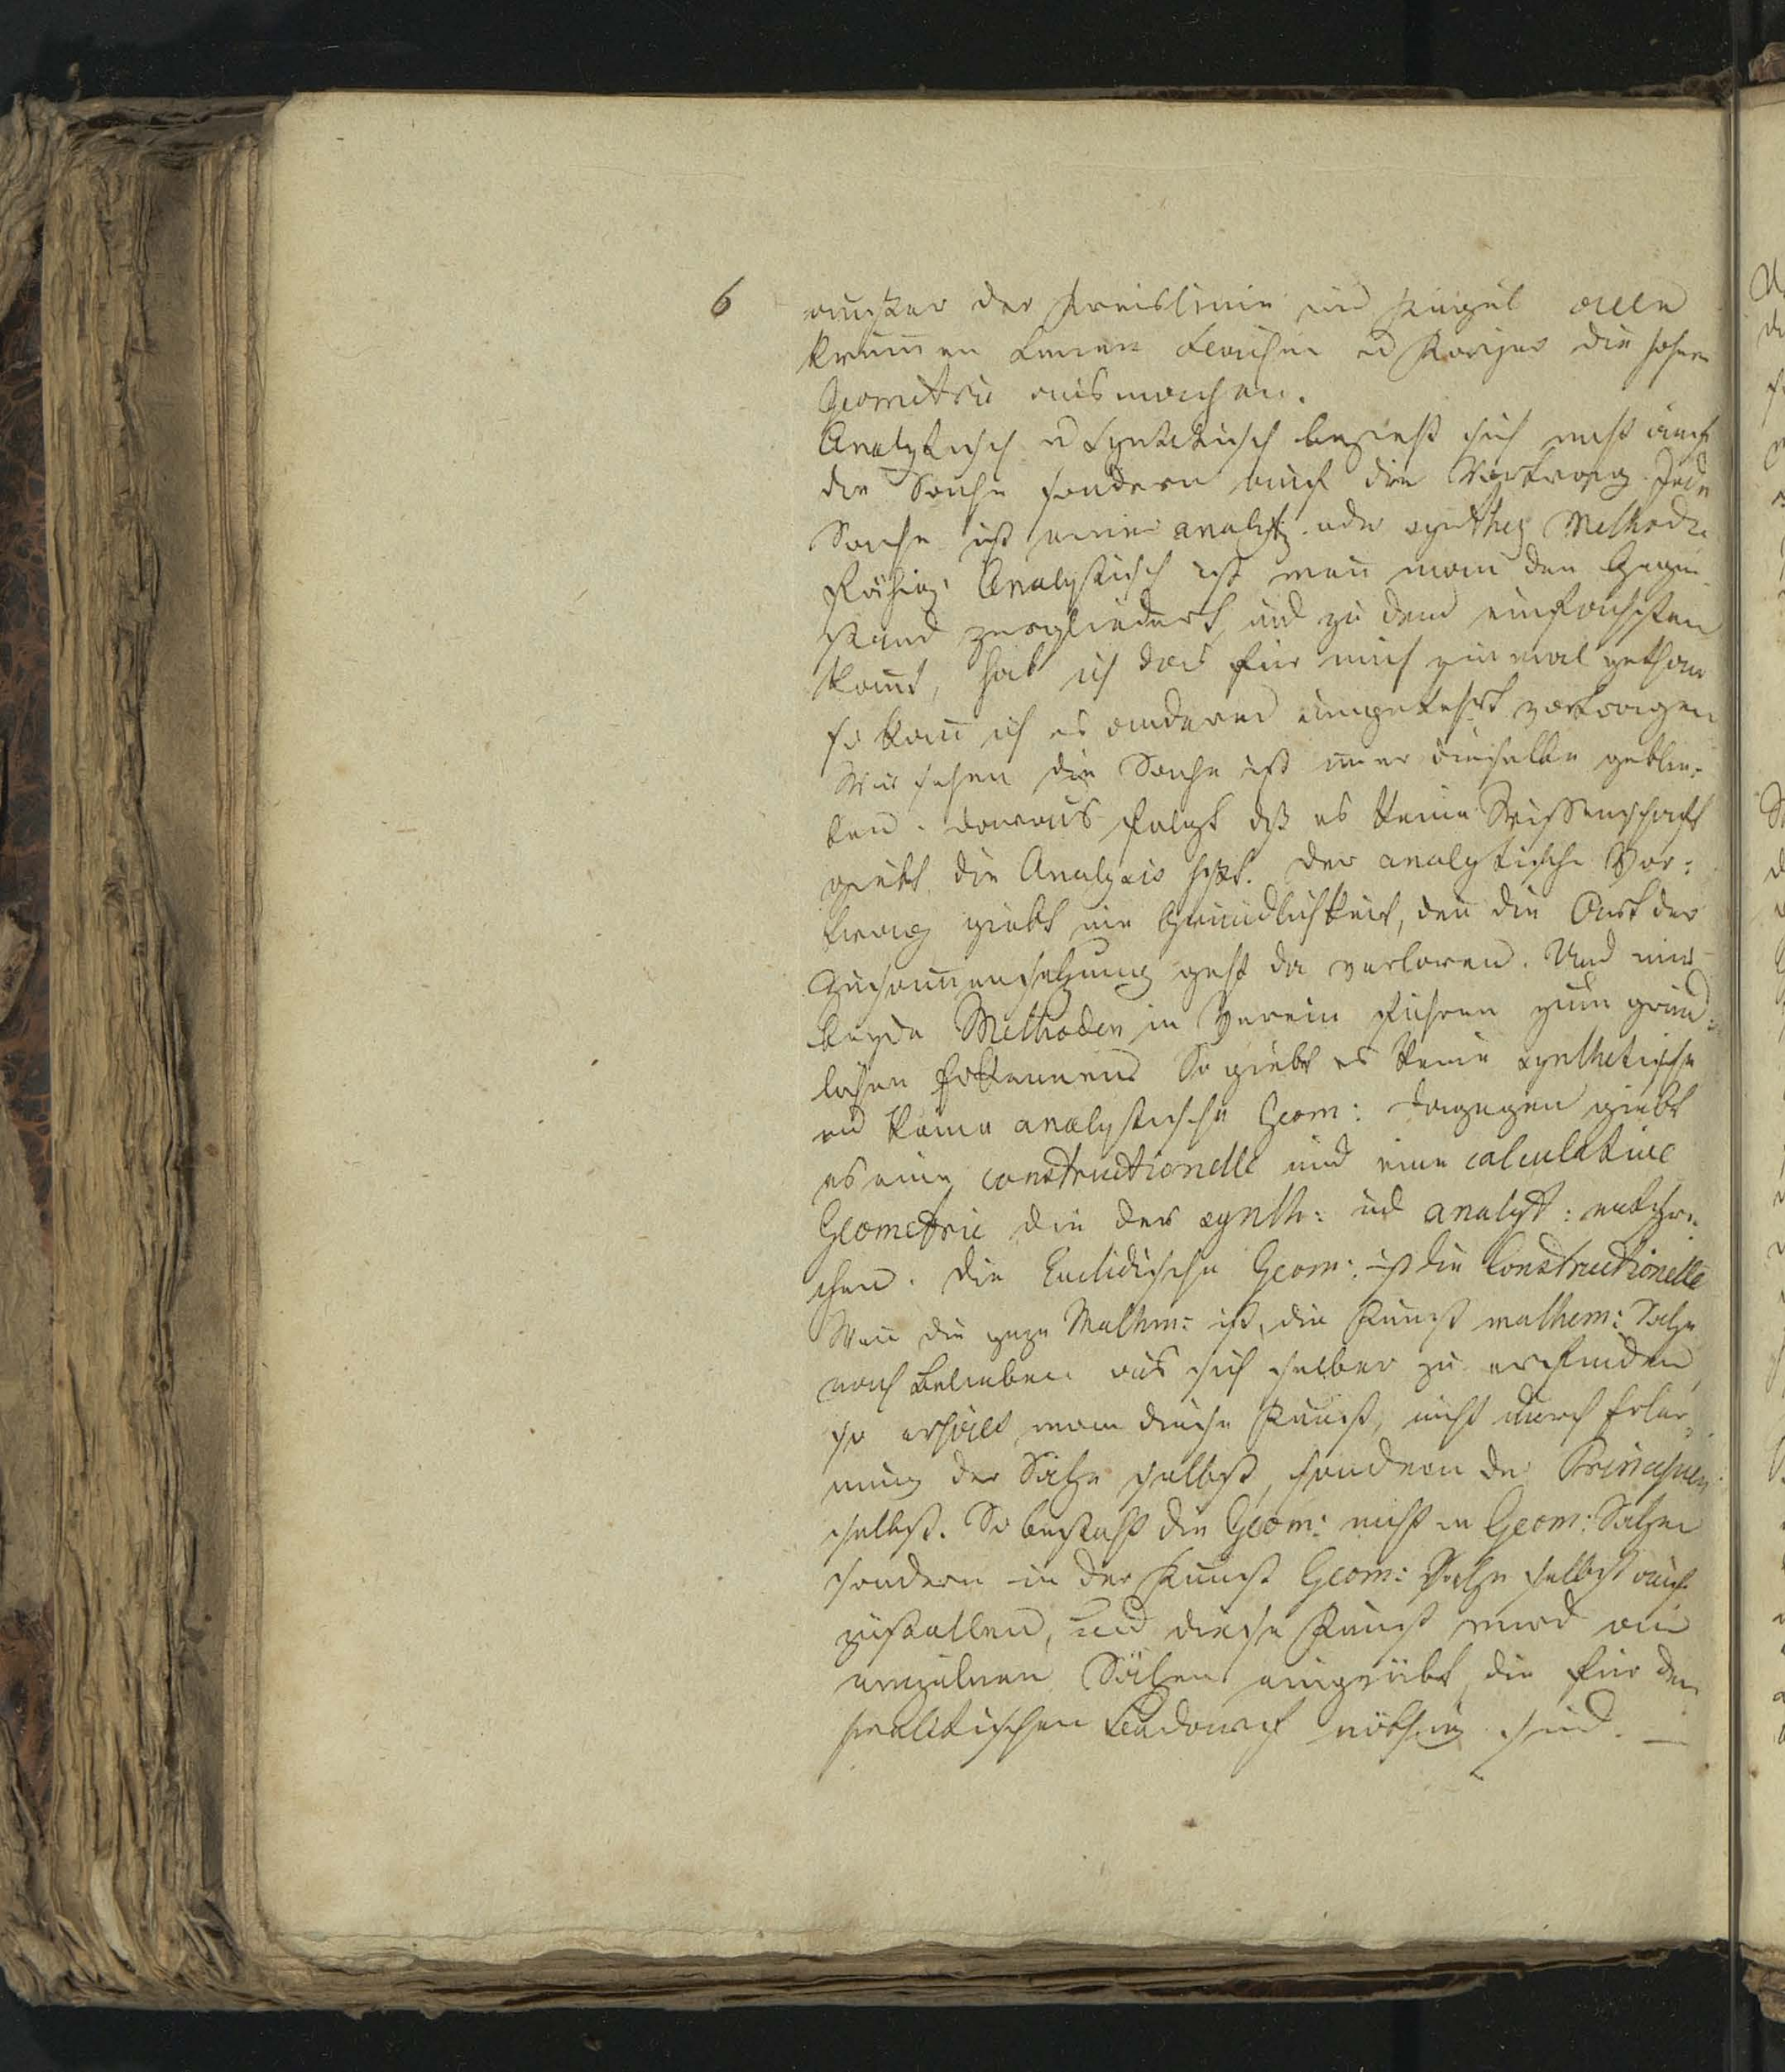 6
außer der Kreislinie und Kugel alle
krummen Linien Flächen und Körper die höhere
Geometrie ausmachen.
Analytisch u Synthetisch bezieht sich nicht auf
die Sache sondern auf den Vortrag. Jede
Sache ist einer analyt. oder synthet Methode
fähig. Analytisch ist wenn man den Gegen-
stand zergliedert, und zu dem einfachsten
kommt, hab ich das für mich einmal gethan
so kann ich es anderen umgekehrt vortragen
Wir sehen die Sache ist immer dieselbe geblie-
ben. Daraus folgt daß es keine Wissenschaft
giebt die Analysis heißt. Der analytische Vor-
trag giebt nie Gründlichkeit, denn die Art der
Zusammensetzung geht da verloren. Und nur
beyde Methoden in Verein führen zum gründ-
lichen Erkennen. So giebt es keine synthetische
und keine analytische Geom: dagegen giebt
es eine constructionelle und eine calculative
Geometrie die der synth: und analyt: entspre-
chen. Die Euclidische Geom: ist die Constructionelle
Wenn die ganze Mathm: ist, die Kunst mathem: Sätze
nach Belieben aus sich selber zu erfinden,
so erhält man diese Kunst, nicht durch Erler-
nung der Sätze selbst, sondern der Principien
selbst. So besteht die Geom: nicht in Geom: Sätzen
sondern in der Kunst Geom: Sätze selbst auf-
zustellen, und diese Kunst wird an
einzelnen Sätzen eingeübt, die für den
praktischen Bedarf nöthig sind. —